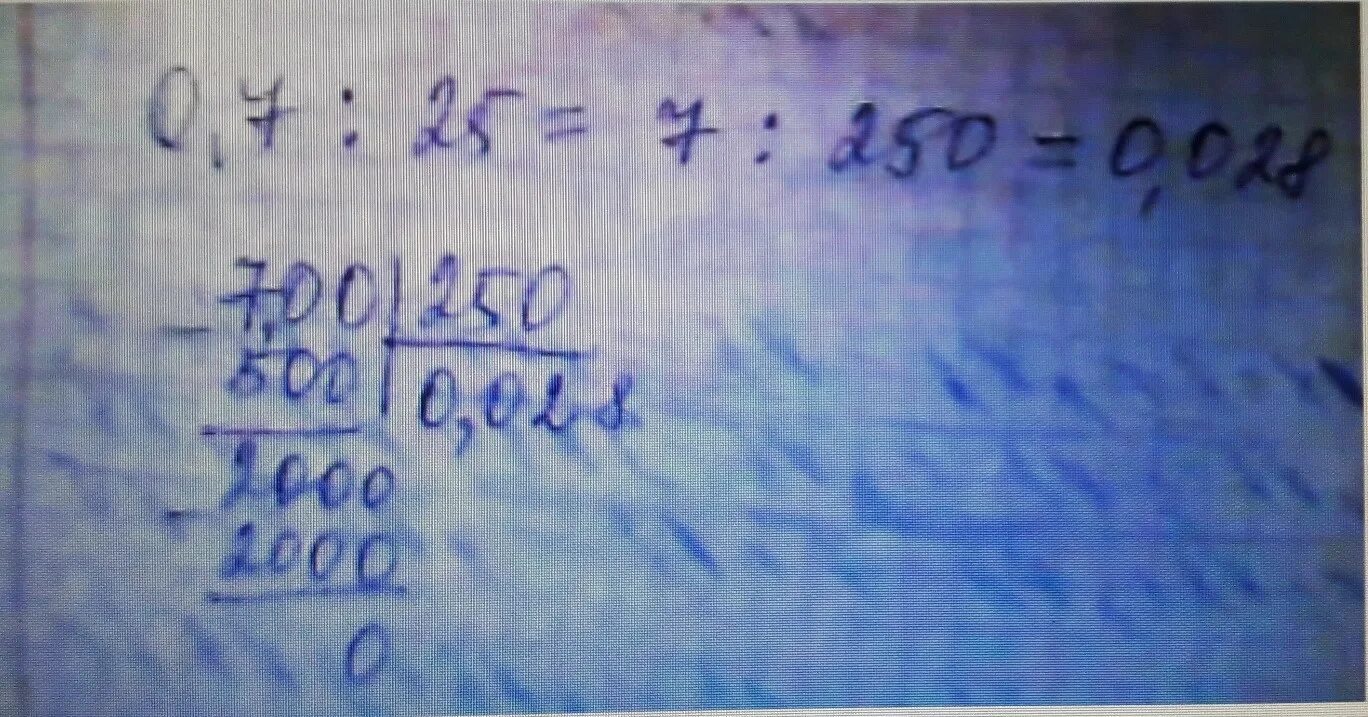 0,7 : 25 = 7 : 250 = 0,028
- 7,00 | 250
500 | 0,028
2000
- 2000
0